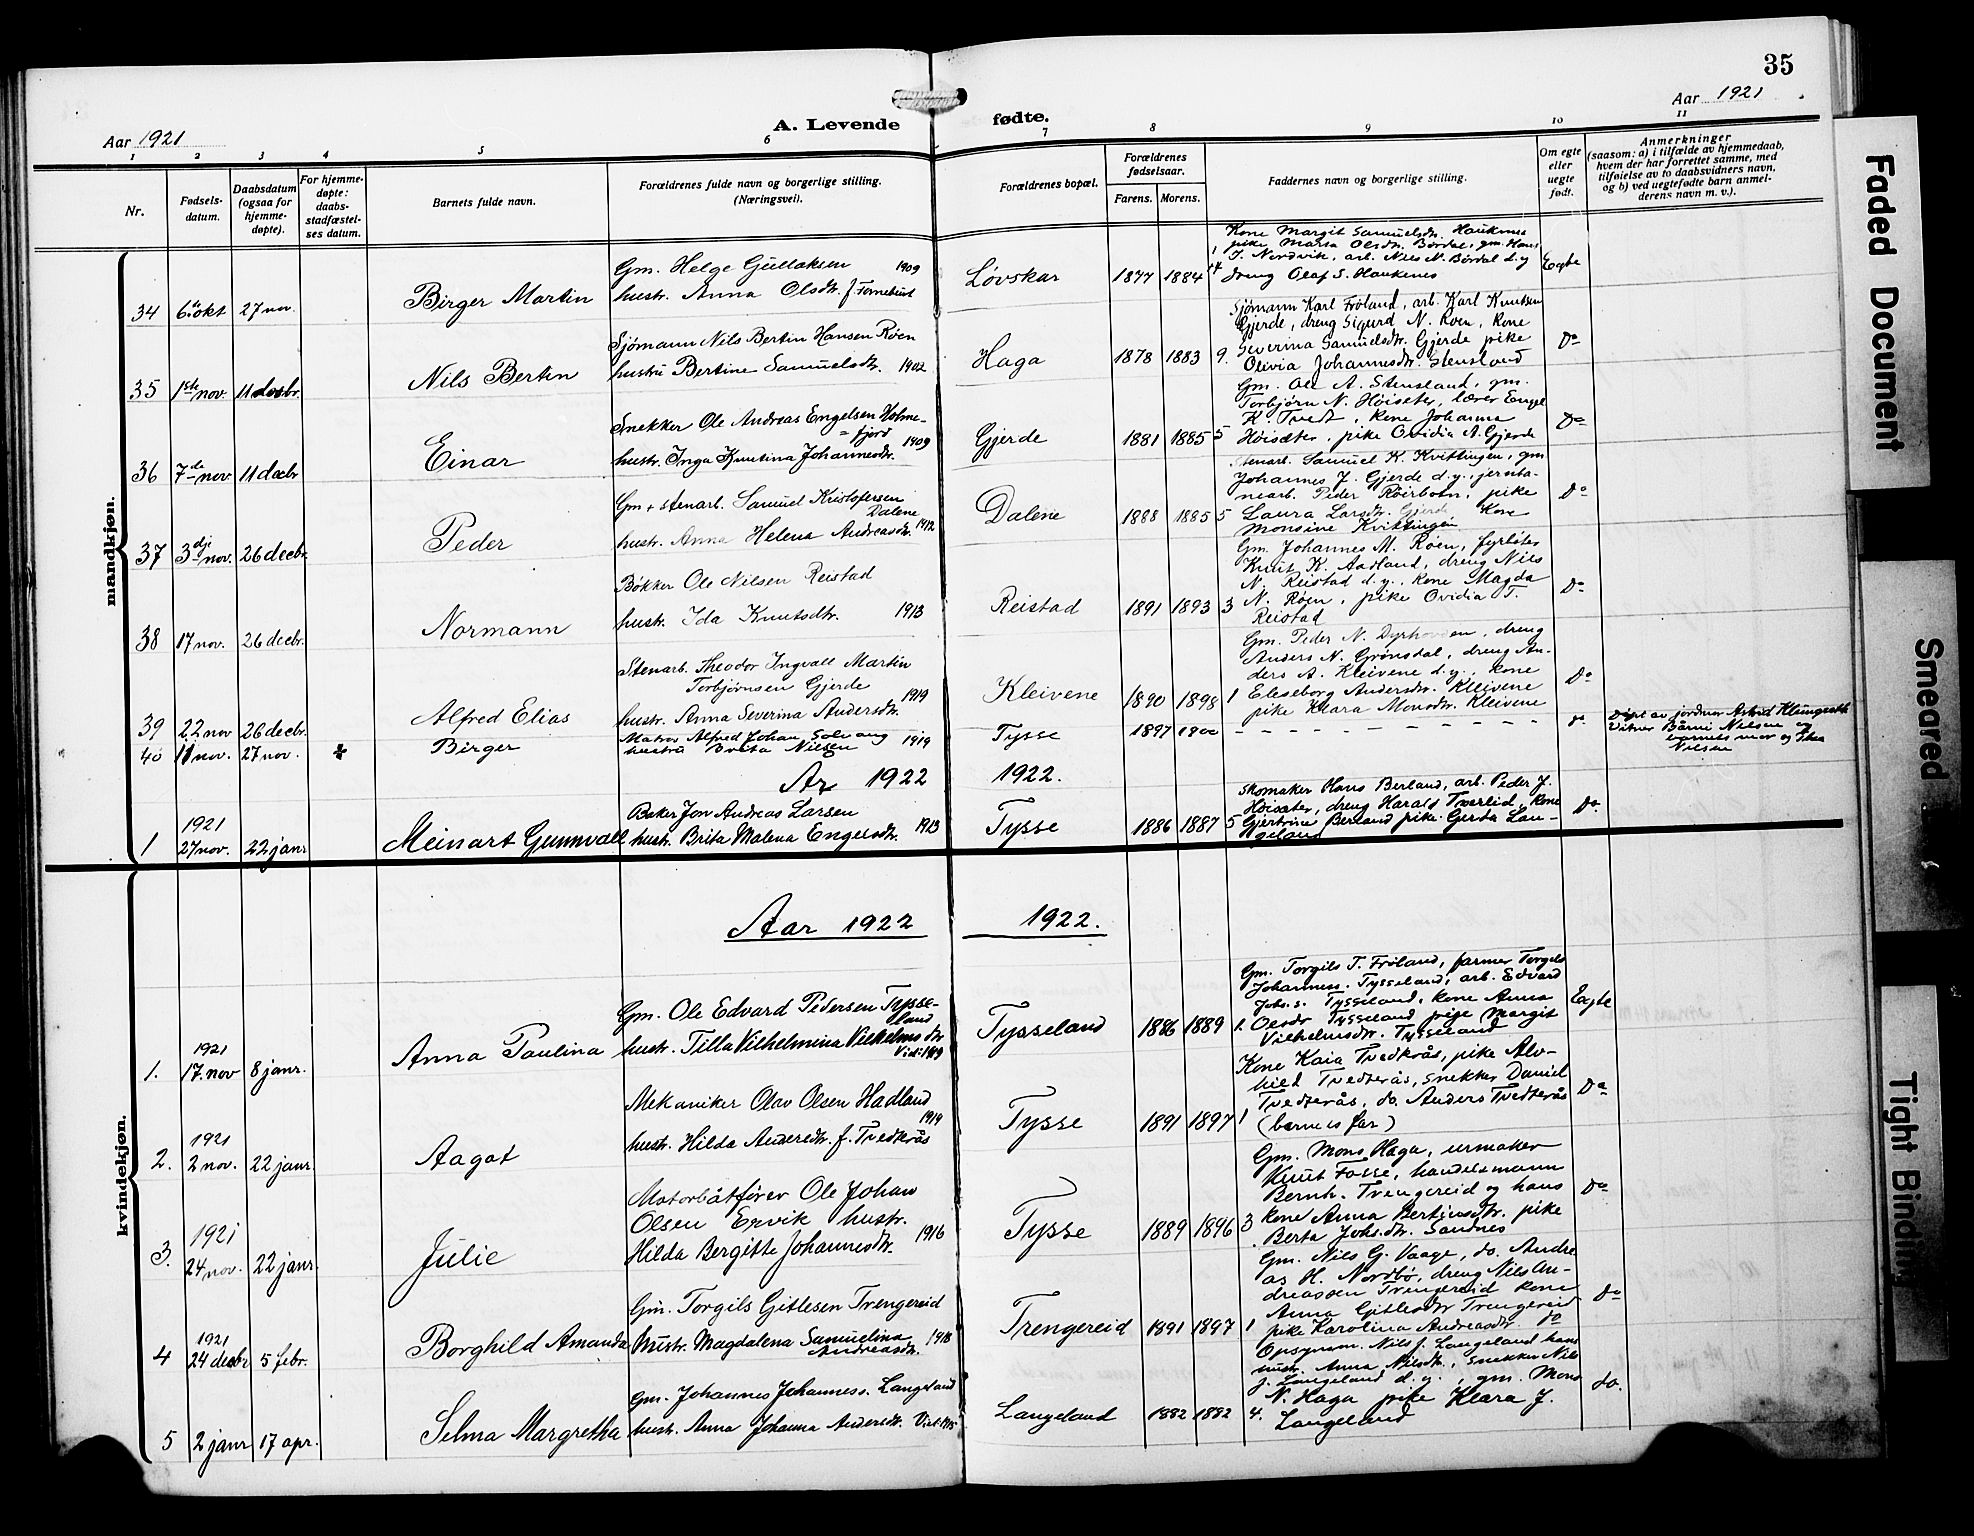 35
Aar 1921
A. Levende
fødte.
Aar 1921
1 2 3 4 5 6 7 8 9 10 11
Nr.
Fødsels-
datum.
Daabsdatum
(ogsaa for
hjemme-
døpte).
For hjemme-
døpte:
daabs-
stadfæstel-
ses datum.
Barnets fulde navn.
Forældrenes fulde navn og borgerlige stilling.
(Næringsvei).
Forældrenes bopæl.
Forældrenes
fødselsaar.
Farens. Morens.
Faddernes navn og borgerlige stilling.
Om egte
eller
uegte
født.
Anmerkninger
(saasom: a) i tilfælde av hjemmedaab,
hvem der har forrettet samme, med
tilføielse av to daabsvidners navn,
og b) ved uegtefødte barn anmel-
derens navn m. v.).
mandkjøn.
34 6. okt 27 nov. Birger Martin
Gm. Helge Gullaksen 1909
hustr. Anna Olsdtr. f.
Løvskar 1877 1884
Kone Margit Samuelsdtr. Haukenes
pike Marta Olsdtr. Børdal, gm. Hans
J. Nordvik, arb. Nils N. Børdal d.y
dreng Olaf S. Haukenes
Egte
35 1ste nov. 11 decbr. Nils Bertin
Sjømann Nils Bertin Hansen Røen
hustru Bertine Samuelsdtr. 1902
Haga 1878 1883 9.
Sjømann Karl Frøland, arb. Karl Knutsen
Gjerde, dreng Sigurd N. Røen, kone
Severina Samuelsdtr. Gjerde pike
Olivia Johannesdtr. Stensland
Do
36 7de nov. 11 decbr Einar
Snekker Ole Andreas Engelsen Holme-
fjord 1909
hustr. Inga Knutina Johannesdtr.
Gjerde 1881 1885 5
Gm. Ole A. Stensland, gm.
Torbjørn N. Høisæter, lærer Engel
K. Tvedt, kone Johanna
Høisæter, pike Ovidia A. Gjerde
Do
37 3dj nov. 26 decbr. Peder
Gm + stenarb. Samuel Kristofersen
Dalene
hustr. Anna Helena Andreasdtr. 1912
Dalene 1888 1885 5
Stenarb. Samuel K. Kvittingen, gm
Johannes J. Gjerde d.y., jernba-
nearb. Peder Røirbotn, pike
Laura Larsdtr. Gjerde Kone
Monsine Kvittingen
Do
38 17 nov. 26 decbr. Normann
Bøkker Ole Nilsen Reistad
hustr. Ida Knutsdtr. 1913
Reistad 1891 1893 3
Gm. Johannes M. Røen, fyrbøter
Knut K. Aadland, dreng Nils
N. Reistad d.y., kone Magda
N. Røen, pike Ovidia T.
Reistad
Do
39 22 nov 26 decbr. Alfred Elias
Stenarb. Theodor Ingvall Martin
Torbjørnsen Gjerde
hustr. Anna Severina Andersdtr. 1919
Kleivene 1890 1898 1
Gm. Peder N. Dyrhovden, dreng
Anders N. Grønsdal, dreng An-
ders A. Kleivene d.y., kone
Eleseborg Andersdtr. Kleivene
pike Klara Monsdtr. Kleivene
Do
40 11 nov. 27 nov. Birger
Matros Alfred Johan Solvang 1919
hustru Brita Nilsen
Tysse 1897
Do
Døpt av jordmor Astrid
Vitner Nilsen og
barnets mor og
Nilsen
Ar 1922 1922.
1 1921
27 nov. 22 janr Meinart Gunnvall
Baker Jon Andreas Larsen
hustr. Brita Malena Engelsdtr. 1913
Tysse 1886 1887 5
Skomaker Hans Berland, arb. Peder J.
Høisæter, dreng Harald Tverlid, kone
Gjertrine Berland pike Gerda Lan-
geland
Do
kvindekjøn.
Aar 1922 1922.
1. 1921
17. nov 8 janr. Anna Paulina
Gm. Ole Edvard Pedersen Tysse-
land
hustr. Tilla Vilhelmina Vilhelmsdtr
Tysseland 1886 1889 1.
Gm. Torgils T. Frøland, farmer Torgils
Johanness. Tysseland, arb. Edvard
Johs. s. Tysseland, kone Anna
Olsdr Tysseland pige Margit
Vilhelmsdtr. Tysseland
Egte
2. 1921
2 nov. 22 janr. Aagot
Mekaniker Olav Olsen Hadland
1919
hustr. Hilda Andersdtr. f. Tvedterås
Tysse 1891 1897 1
Kone Kaia Tvedterås, pike Alv-
hild Tvedterås, snekker Daniel
Tvedterås, do. Anders Tvedterås
(barnets far)
Do
3. 1921
24 nov. 22 janr. Julie
Motorbåtfører Ole Johan
Olsen Ervik hustr.
Hilda Bergitte Johannesdtr. 1916
Tysse 1889 1896 3
Gm. Mons Haga, urmaker
Knut Fosse, handelsmann
Bernh. Trengereid og hans
kone Anna Bertinsdtr. pike
Berta Johsdtr. Sandnes
Do
4 1921
24 decbr 5 febr. Borghild Amanda
Gm. Torgils Gitlesen Trengereid
hustr. Magdalena Samuelina 1918
Andreasdtr.
Trengereid 1891 1897 1
Gm. Nils G. Vaage, do. Andre
as H. Nordbø, dreng Nils An-
dreassen Trengereid kone
Anna Gitlesdtr Trengereid
pike Karolina Andreasdtr. do
Do
5 2 janr 17 apr. Selma Margretha
Gm. Johannes Johanness. Langeland
hustr. Anna Johanna Andersdtr.
Langeland 1882 1882 4.
Opsynsm. Nils J. Langeland hans
hustr. Anna Nilsdtr., snekker Nils
J. Langeland d.y., gm. Mons
N. Haga pike Klara J.
Langeland
do.
Faded Document
Smeared
Tight Bindin